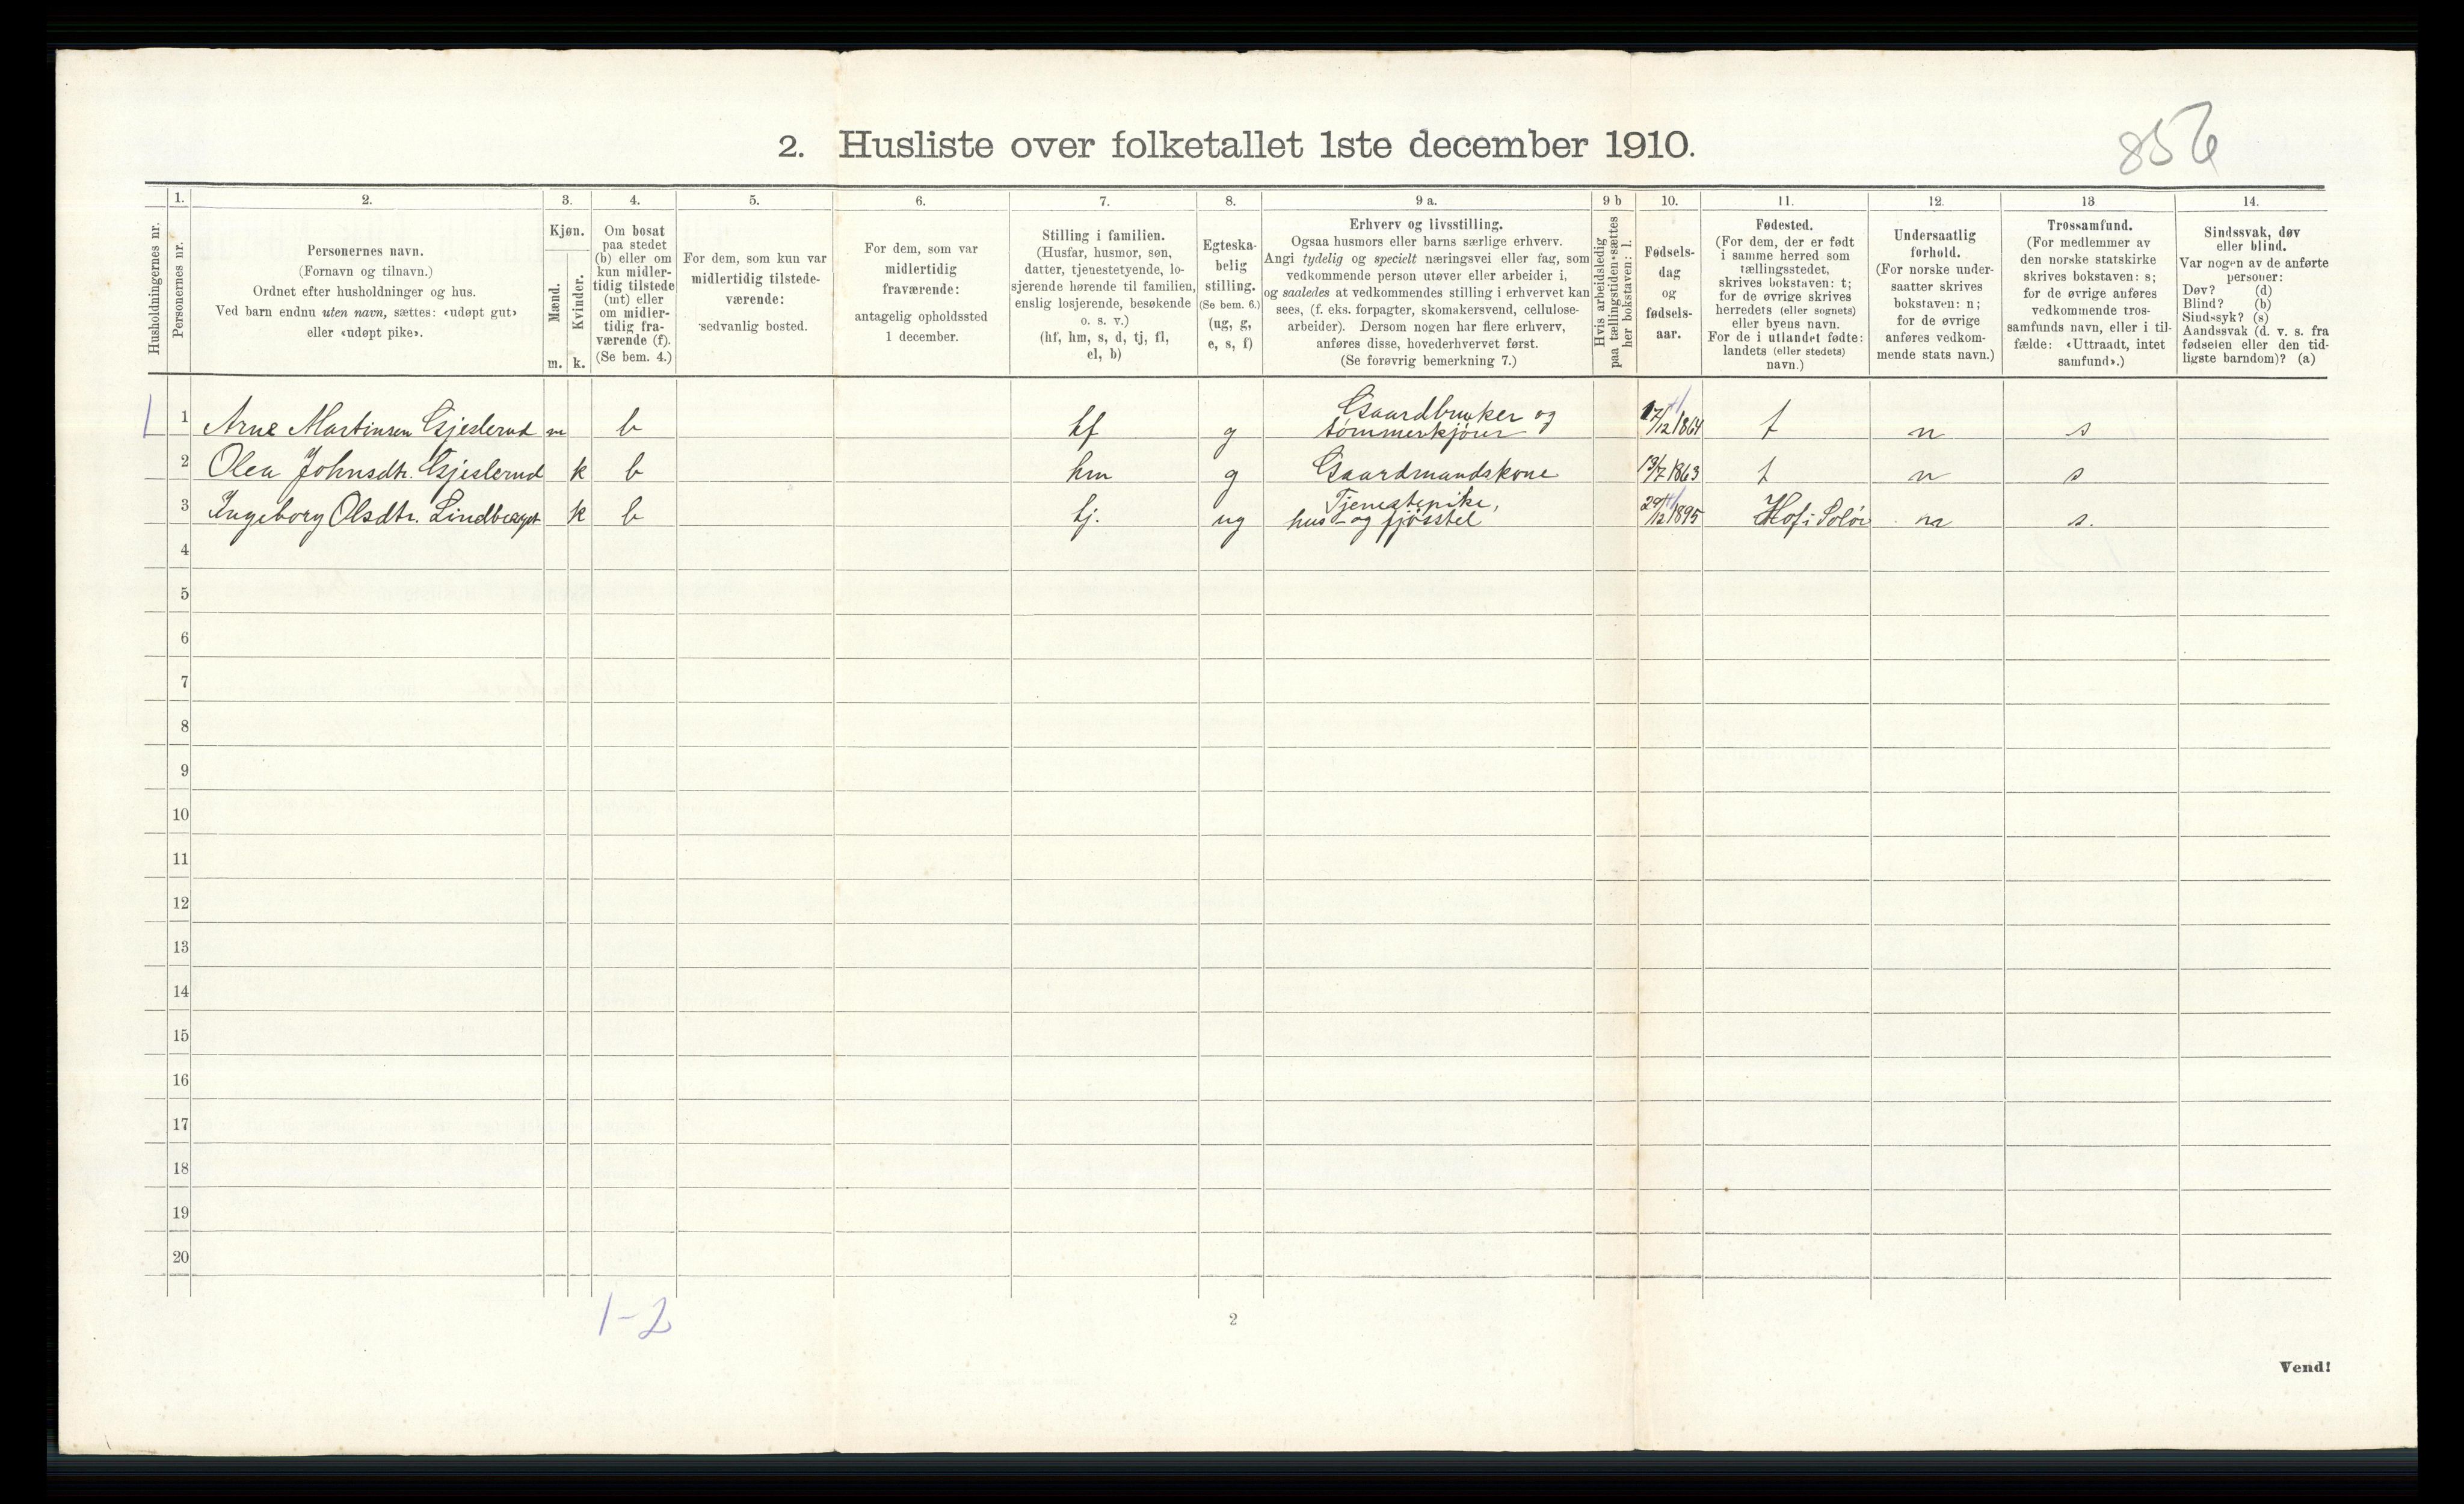 856
2. Husliste over folketallet 1ste december 1910.
1. 2. 3. 4. 5. 6. 7. 8. 9 a. 9 b 10. 11. 12. 13 14.
Husholdningernes nr.
Personernes nr.
Personernes navn.
(Fornavn og tilnavn.)
Ordnet efter husholdninger og hus.
Ved barn endnu uten navn, sættes: «udøpt gut»
eller «udøpt pike».
Kjøn.
Mænd.
Kvinder.
m. k.
Om bosat
paa stedet
(b) eller om
kun midler-
tidig tilstede
(mt) eller
om midler-
tidig fra-
værende (f).
(Se bem. 4.)
For dem, som kun var
midlertidig tilstede-
værende:
sedvanlig bosted.
For dem, som var
midlertidig
fraværende:
antagelig opholdssted
1 december.
Stilling i familien.
(Husfar, husmor, søn,
datter, tjenestetyende, lo-
sjerende hørende til familien,
enslig losjerende, besøkende
o. s. v.)
(hf, hm, s, d, tj, fl,
el, b)
Egteska-
belig
stilling.
(Se bem. 6.)
(ug, g,
e, s, f)
Erhverv og livsstilling.
Ogsaa husmors eller barns særlige erhverv.
Angi tydelig og specielt næringsvei eller fag, som
vedkommende person utøver eller arbeider i,
og saaledes at vedkommendes stilling i erhvervet kan
sees, (f. eks. forpagter, skomakersvend, cellulose-
arbeider). Dersom nogen har flere erhverv,
anføres disse, hovederhvervet først.
(Se forøvrig bemerkning 7.)
Hvis arbeidsledig
paa tællingstiden sættes
her bokstaven: l.
Fødsels-
dag
og
fødsels-
aar.
Fødested.
(For dem, der er født
i samme herred som
tællingsstedet,
skrives bokstaven: t;
for de øvrige skrives
herredets (eller sognets)
eller byens navn.
For de i utlandet fødte:
landets (eller stedets)
navn.)
Undersaatlig
forhold.
(For norske under-
saatter skrives
bokstaven: n;
for de øvrige
anføres vedkom-
mende stats navn.)
Trossamfund.
(For medlemmer av
den norske statskirke
skrives bokstaven: s;
for de øvrige anføres
vedkommende tros-
samfunds navn, eller i til-
fælde: «Uttraadt, intet
samfund».)
Sindssvak, døv
eller blind.
Var nogen av de anførte
personer:
Døv? (d)
Blind? (b)
Sindssyk? (s)
Aandssvak (d. v. s. fra
fødselen eller den tid-
ligste barndom)? (a)
1 1 Arne Martinsen Gjeslerud m b hf g Gaardbruker og tømmerkjører 17/12 1864 t n s
2 Olea Johnsdtr. Gjeslerud k b hm g Gaardmandskone 19/7 1863 t n s
3 Ingeborg Olsdtr. Lindberget k b tj. ug Tjenestepike, hus- og fjøsstel 29/12 1895 Hof i Solør n s.
4
5
6
7
8
9
10
11
12
13
14
15
16
17
18
19
20
1-2
2
Vend!